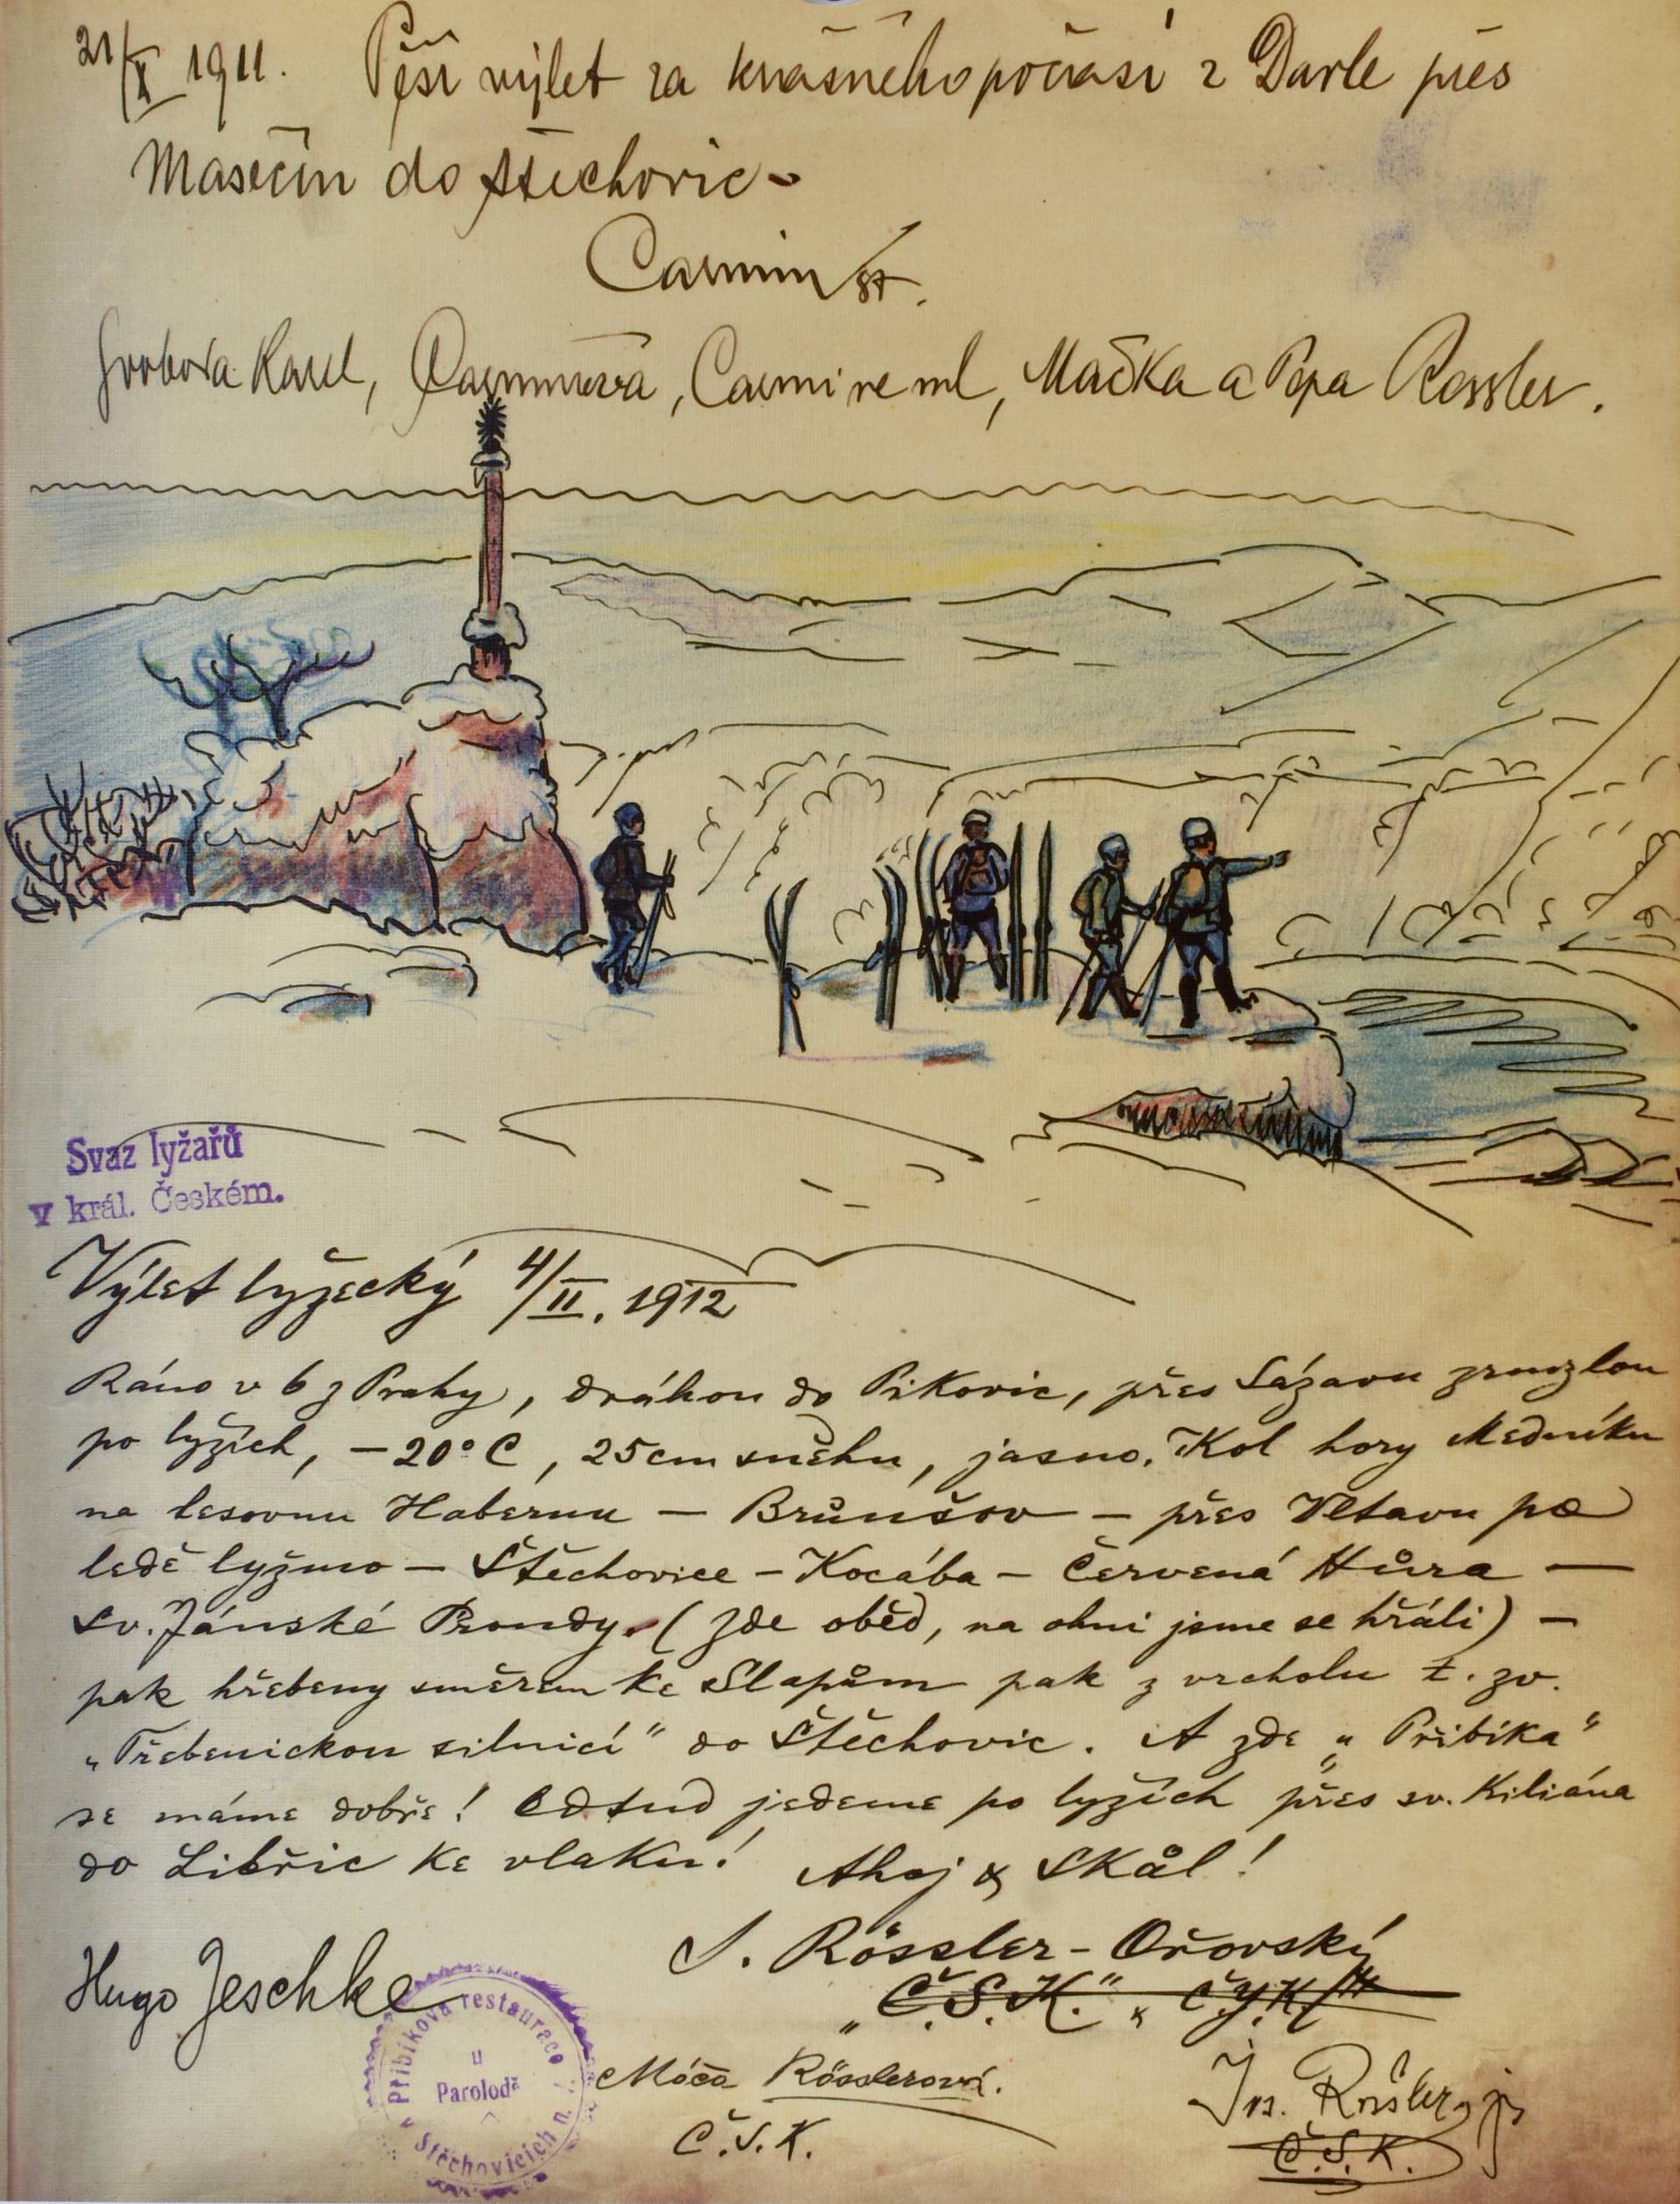 21/X 1911. Pěší výlet za krásného počasí z Davle přes
Masečín do Štěchovic.
st.
Svoboda Karel, ml, Mačka a Pepa Rössler.
Svaz lyžařů
v král. Českém.
Výlet lyžecký 4/II. 1912
Ráno v 6 z Prahy, dráhou do Pikovic, přes Sázavu zmrzlou
po lyžích, -20° C, 25 cm sněhu, jasno. Kol hory Medníku
na lesovnu Habernu — Brůnšov — přes Vltavu po
ledě lyžmo — Štěchovice — Kocába — Červená Hůra —
Sv. Jánské Proudy. (zde oběd, na ohni jsme se hřáli) —
pak hřebeny směrem ke Slapům pak z vrcholu t. zv.
„Třebenickou silnicí" do Štěchovic. A zde „u Přibíka"
se máme dobře! Odtud jedeme po lyžích přes sv. Kiliána
do Libřic ke vlaku! Ahoj & Skål!
J. Rössler-Ořovský
„Č.S.K." & Č.Y.K.
Hugo Jeschke
Přibíkova restaurace
u
Parolodě
v Štěchovicích n. V.
Máča Rösslerová.
Č.S.K.
Jos. Rössler jr
Č.S.K.